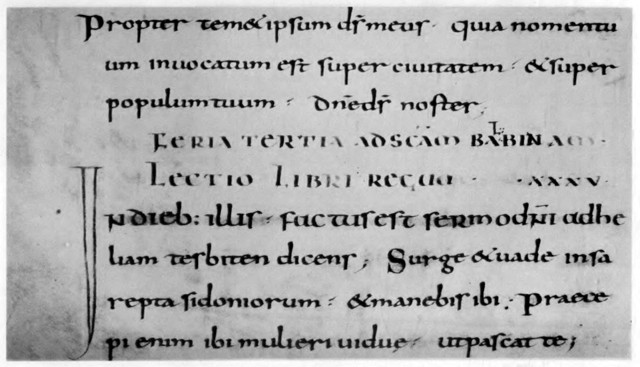 Propter tem&ipsum ds̄ meus · quia nomentu
um inuocatum est super ciuitatem · &super
populumtuum · dn̄eds̄ noster,
FERIA TERTIA ADSCĀM BALBINAM ·
LECTIO LIBRI REGUM · · XXXV
INDieb: illis · factusest sermodn̄i adhe
liam tesbiten dicens; Surge &uade insa
repta sidoniorum · &manebis ibi. Praece
pi enim ibi mulieri uidue, utpascat te;